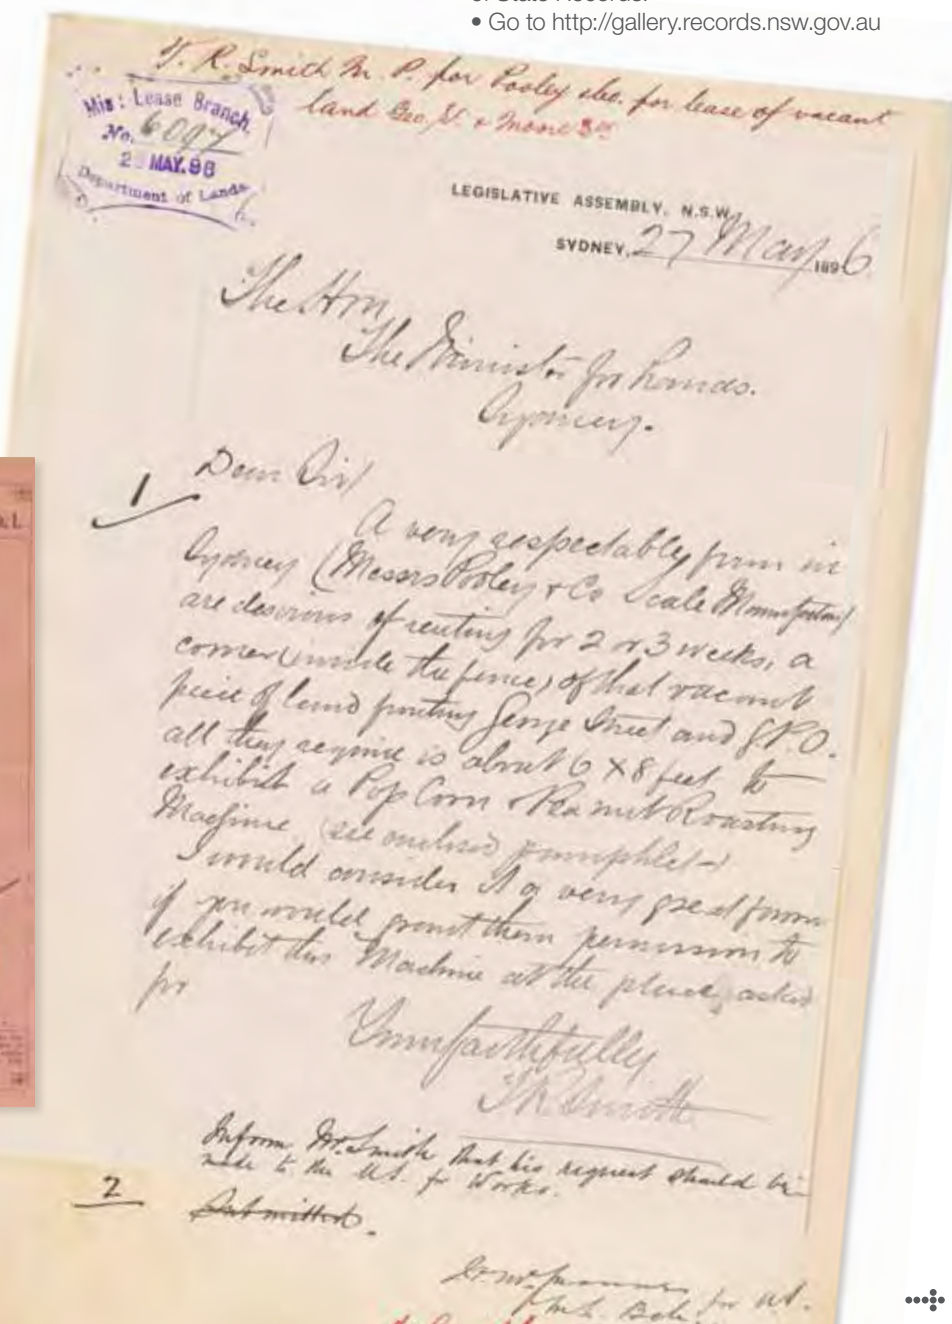 of State Records.
• Go to http://gallery.records.nsw.gov.au
T. R. Smith M. P. for Pooley for lease of vacant
land Geo. St. & Moore St
Mis: Lease Branch.
No. 6097
2 MAY.96
Department of Lands
LEGISLATIVE ASSEMBLY, N.S.W.
SYDNEY, 27 May 1896
The Hon
The Minister for Lands.
Sydney.
1
Dear Sir/
A very respectably firm in
Sydney (Messrs Pooley & Co Scale Manufactors)
are desirous of renting for 2 or 3 weeks, a
corner (inside the fence) of that vacant
piece of land fronting George Street and G.P.O.
all they require is about 6 X 8 feet to
exhibit a Pop Corn & Peanut Roasting
Machine (see enclosed pamphlet)
I would consider it a very great favour
if you would grant them permission to
exhibit this Machine at the place, asked
for
Yours faithfully
T R Smith
2
Inform Mr. Smith that his request should be
made to the U.S. for Works.
Submitted.
for U.S.